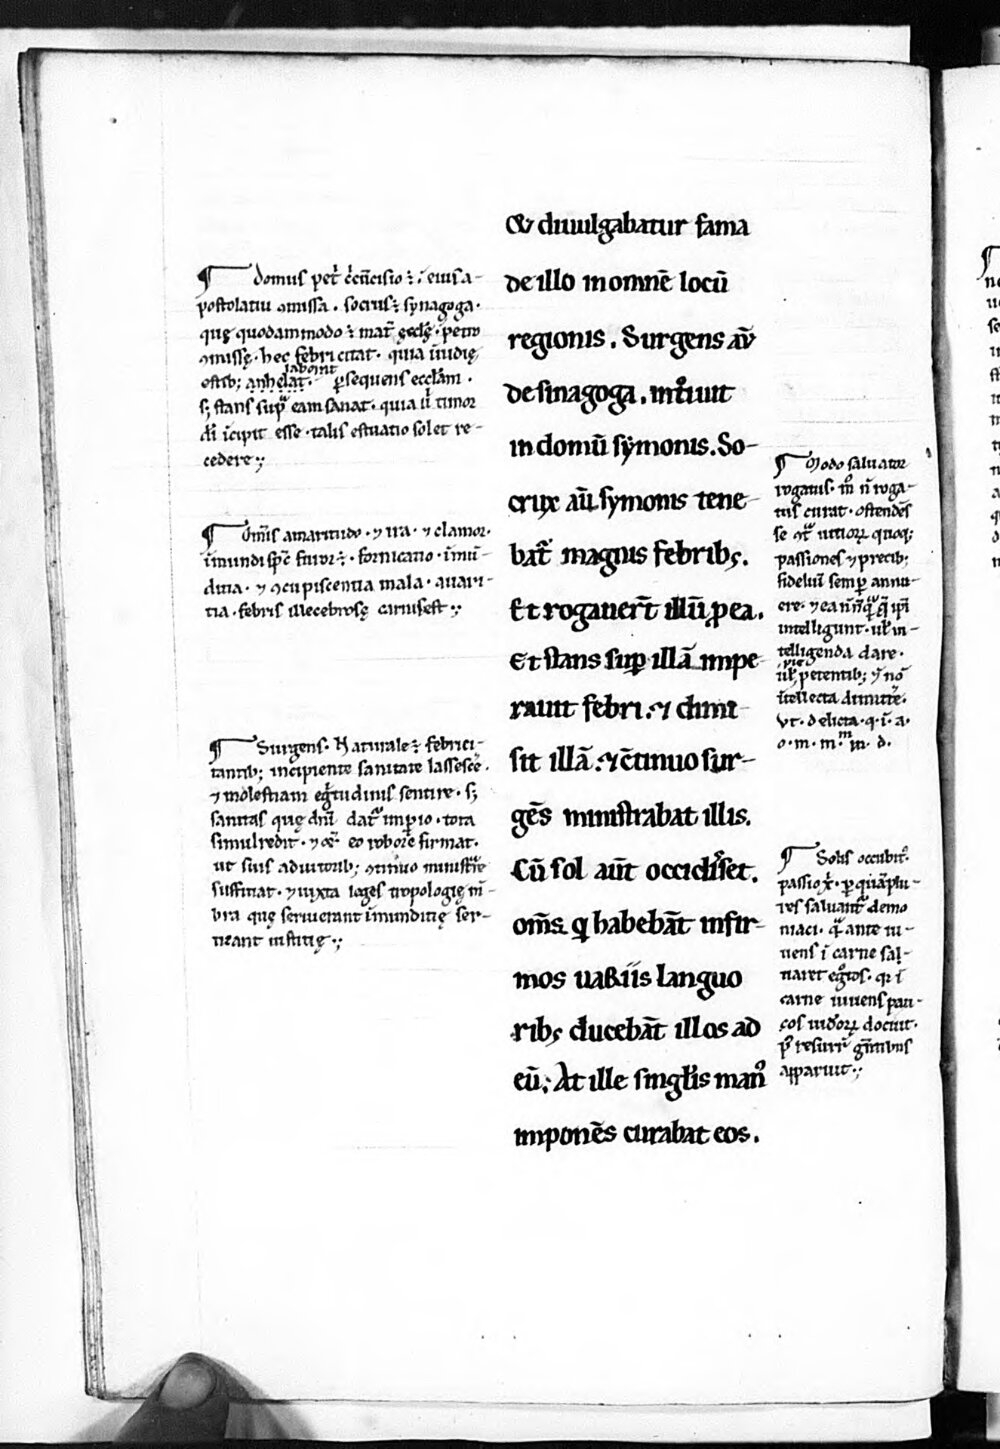 & diuulgabatur fama
de illo in omnē locū
regionis. Surgens aū
de sinagoga. intͦiuit
in domū sẏmonis. So-
crux aū symonis tene-
bat᷑ magnis febrib;.
Et rogauer̄t illū ꝓ ea.
Et stans suꝑ illā impe-
rauit febri. ⁊ dimi-
sit illā. ⁊ ↄ̄tinuo sur-
gēs ministrabat illis.
Cū sol aūt occidiss&.
om̄s q̇ habebāt infir-
mos uariis languo
rib; ducebāt illos ad
eū. At ille singl̓is manꝰ
inponēs curabat eos.
¶ domus pet̓ c̓cūcisio ÷ ī eius a-
postolatū ꝯmissa. socrus ÷ synagoga.
quę quodammodo ÷ mat̓ ęccl̄ę. petro
ꝯmissę. hec febricitat. quia īuidię
estib; anhelat. ꝑsequens eccl̄am.
laborat
s; stans sup̄ eam sanat. quia u̓ timor
dī īcipit esse. talis estuatio solet re-
cedere.
¶ Om̄is amaritudo. ⁊ ira. ⁊ clamor.
īmundi sp̄c furor ÷. fornicatio. īmū-
ditia. ⁊ ꝯcupiscentia mala. auari-
tia. febris illecebrosę carnis est.
¶ Surgens. Naturale ÷ febrici-
tantib; incipiente sanitate lassescē.
⁊ molestiam eg̓tudinis sentire. s;
sanitas quę dn̄i dat᷑ imꝑio. tota
simul redit. ⁊
eo robore firmat.
ut suis adiutorib; ꝯtinuo ministrare
sufficiat. ⁊ iuxta leges tropologię m̄-
bra quę seruierant īmunditię ser-
ueant iustitię.
¶ Modo saluator
rogatus. m̊ n̄ roga-
tus curat. ostendēs
se
uitioꝝ quoq;
passiones ⁊ precib;
fidelium semꝑ annu-
ere. ⁊ ea
ip̄i
intelligunt. ul̓ in-
telligenda dare.
ul̓ petentib;
n̄o
ītellecta dimittē.
Vt. delicta. q. ī. a.
o. m. m. m. d.
¶ Solis occubit᷑.
passio x̄. ꝑ quā plu-
res saluant᷑ demo
niaci. q̄ ante iu-
uens ī carne sal-
uaret egrōs. qr ī
carne uiuens pau-
cos iudeoꝝ docuit.
p̄ resurr̄ gentibus
apparuit.